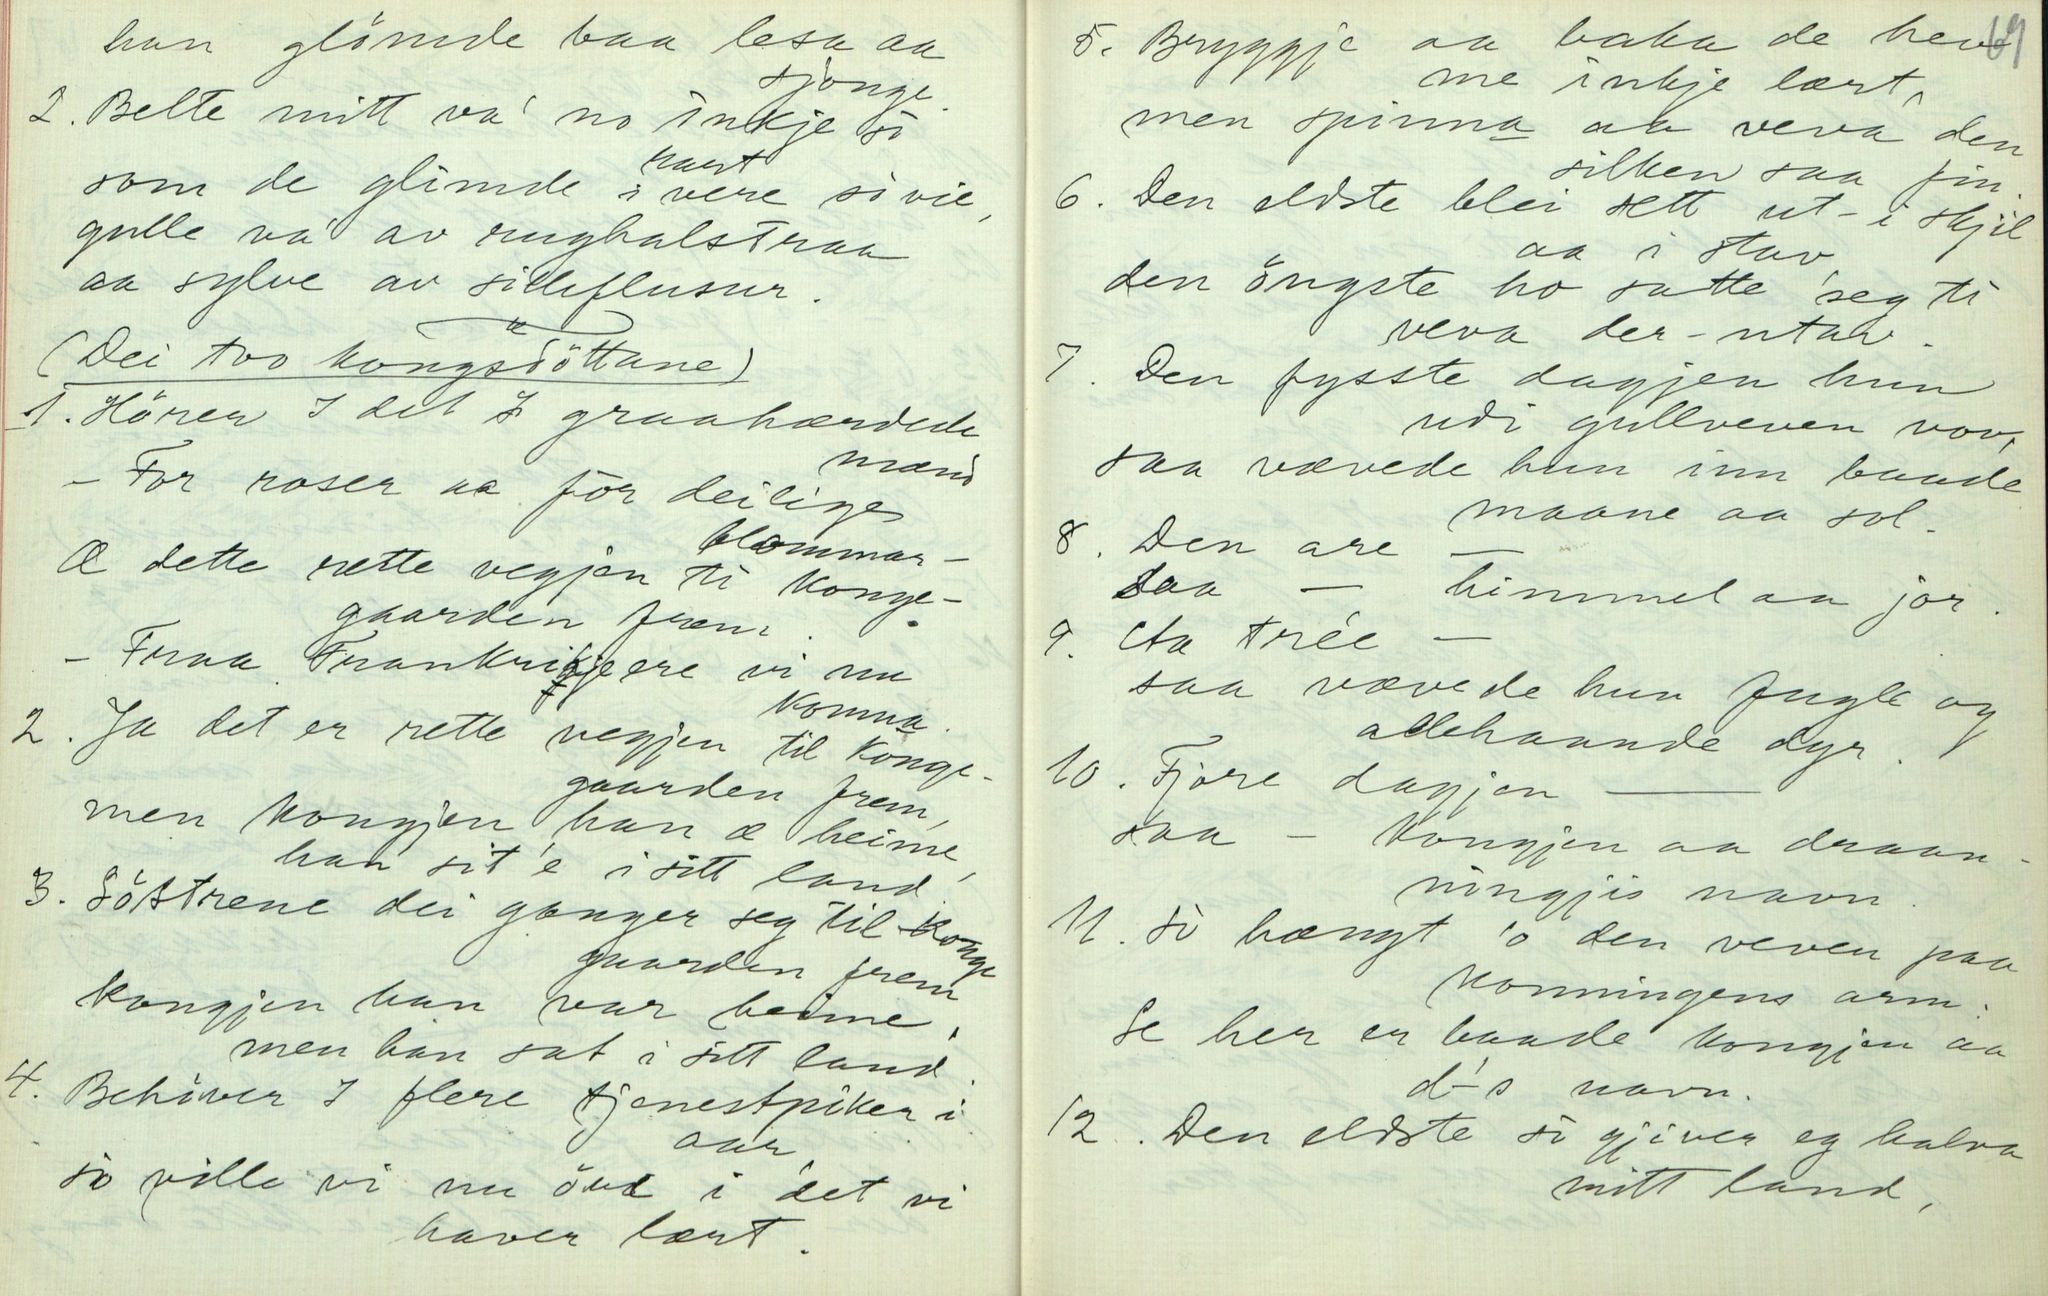 han glömde baa lesa aa
sjonge.
2. Belte mitt va' no inkje so
rart
som de glimde i vere so vie,
gulle va' av rughalstraa
aa sylve av sideflusur.
(Dei tvo kongsdöttane)
1. Hörer I det I graahærdede
mænd
– For roser aa for deilige
blommar –
Æ dette rette vegjen ti konge-
gaarden frem.
– Fraa Frankrikje ere vi nu
komna.
2. Ja det er rette vegjen til konge-
gaarden frem,
men kongjen han æ heime,
han sit'e i sitt land.
3. Söstrene dei ganger seg til konge
gaarden frem
kongjen han var heime,
men han sat i sitt land.
4. Behöver I flere tjenestpiker i
aar
so ville vi nu i det vi
haver lært.
69
5. Bryggje aa baka de heve
me inkje lært,
men spinna aa veva den
silken saa fin.
6. Den eldste blei sett ut-i skjil
aa i stav
den öngste ho satte seg ti
veva der-utav.
7. Den fysste dagjen hun
udi gullveven vov,
saa vævede hun inn baade
maane aa sol.
8. Den are —
saa — himmel aa jor.
9. Aa trée —
saa vævede hun fugle og
allehaande dyr.
10. Fjore dagjen —
saa — kongjen aa draan-
ningjis navn.
11. So hængt 'o den veven paa
konningens arm:
Se her er baade kongjen aa
d–s navn.
12. Den eldste so gjiver eg halva
mitt land,